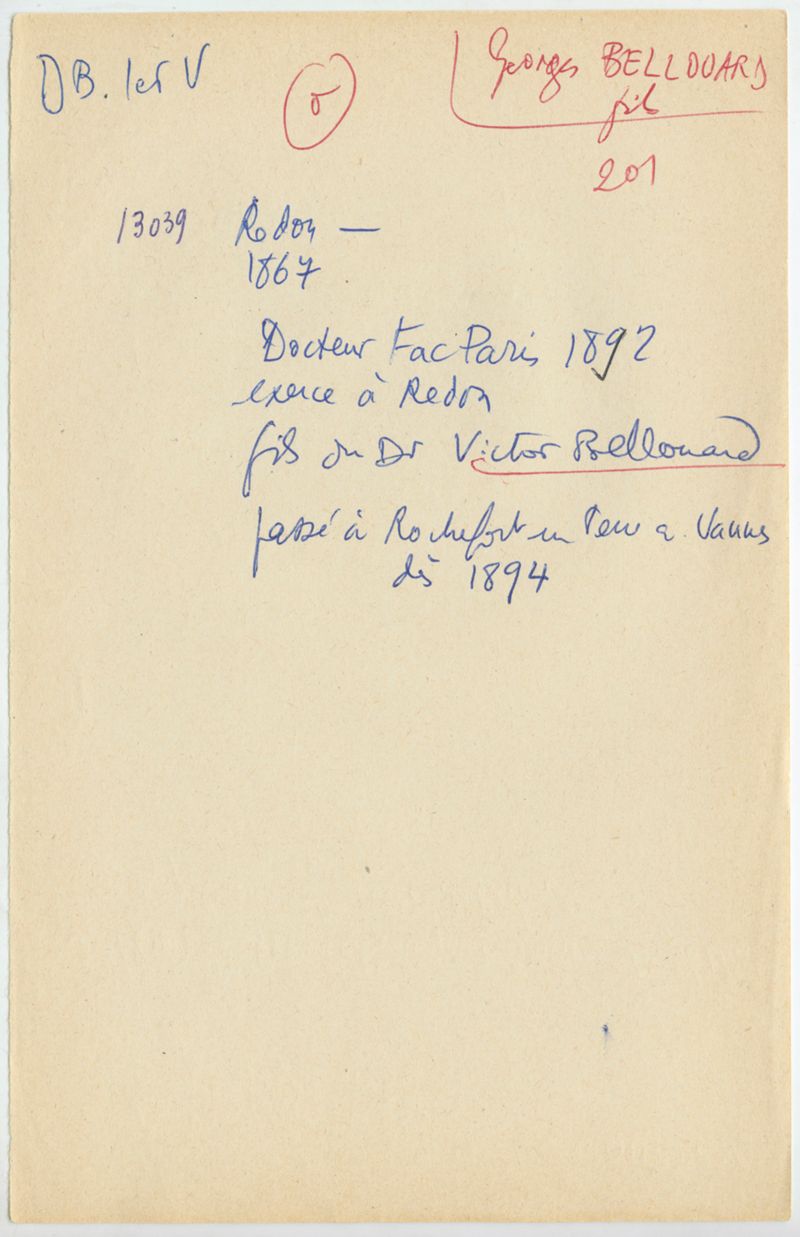 DB. I et V
Georges BELLOUARD
fils
201
13039 Redon —
1867
Docteur Fac Paris 1892
exerce à Redon
fils du Dr Victor Bellouard
passé à Rochefort en Terre a. Vannes
dès 1894